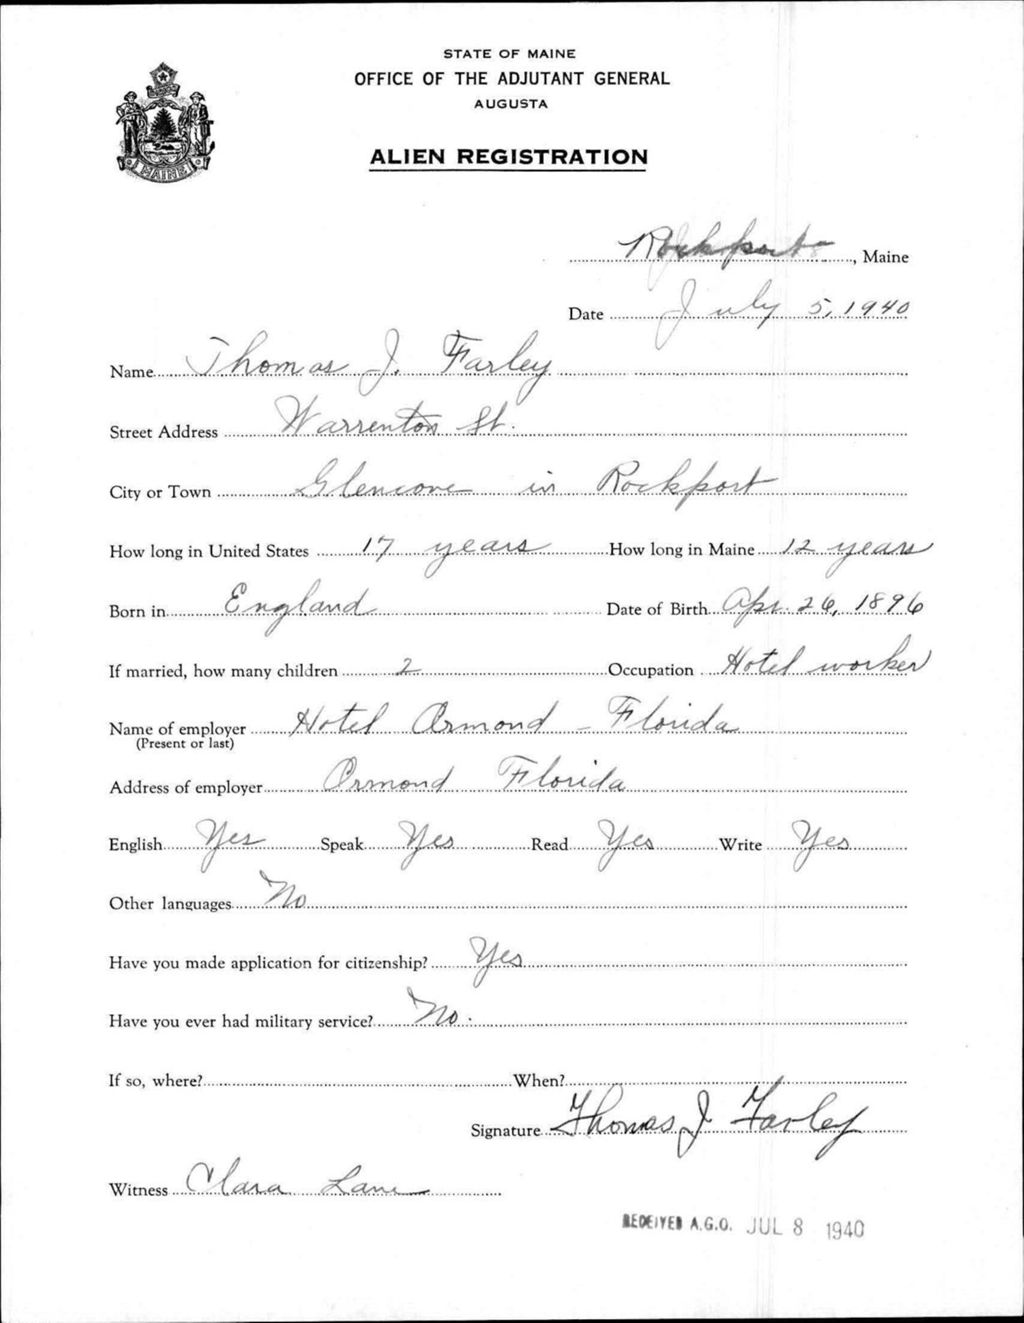 STATE OF MAINE
OFFICE OF THE ADJUTANT GENERAL
AUGUSTA
ALIEN REGISTRATION
MAINE
Rockport, Maine
Date July 5, 1940
Name Thomas J. Farley
Street Address Warrenton St.
City or Town Glencove in Rockport
How long in United States 17 years How long in Maine 12 years
Born in England Date of Birth Apr. 26, 1896
If married, how many children 2 Occupation Hotel worker
Name of employer Hotel Ormond - Florida
(Present or last)
Address of employer Ormond Florida
English Yes Speak Yes Read Yes Write Yes
Other languages No
Have you made application for citizenship? Yes
Have you ever had military service? No.
If so, where? When?
Signature Thomas J Farley
Witness Clara Lane
RECEIVED A.G.O. JUL 8 1940